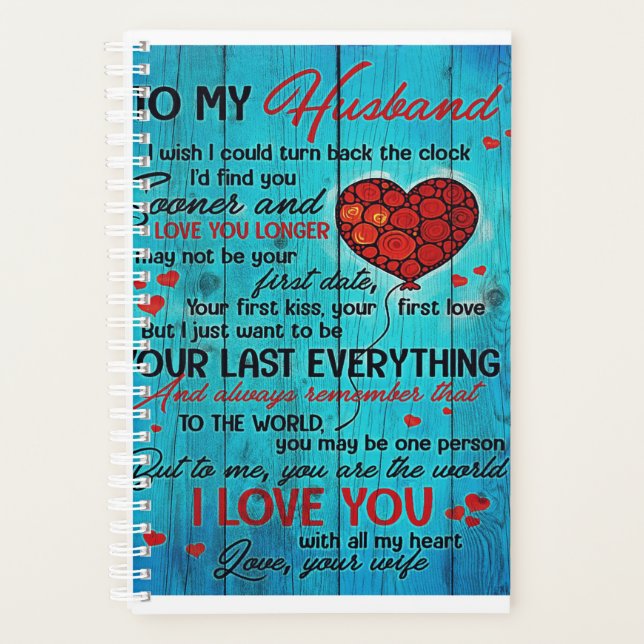 TO MY Husband
I wish I could turn back the clock
I'd find you
Sooner and
LOVE YOU LONGER
may not be your
first date,
Your first kiss, your first love
But I just want to be
YOUR LAST EVERYTHING
And always remember that
TO THE WORLD,
you may be one person
But to me, you are the world
I LOVE YOU
with all my heart
Love, your wife